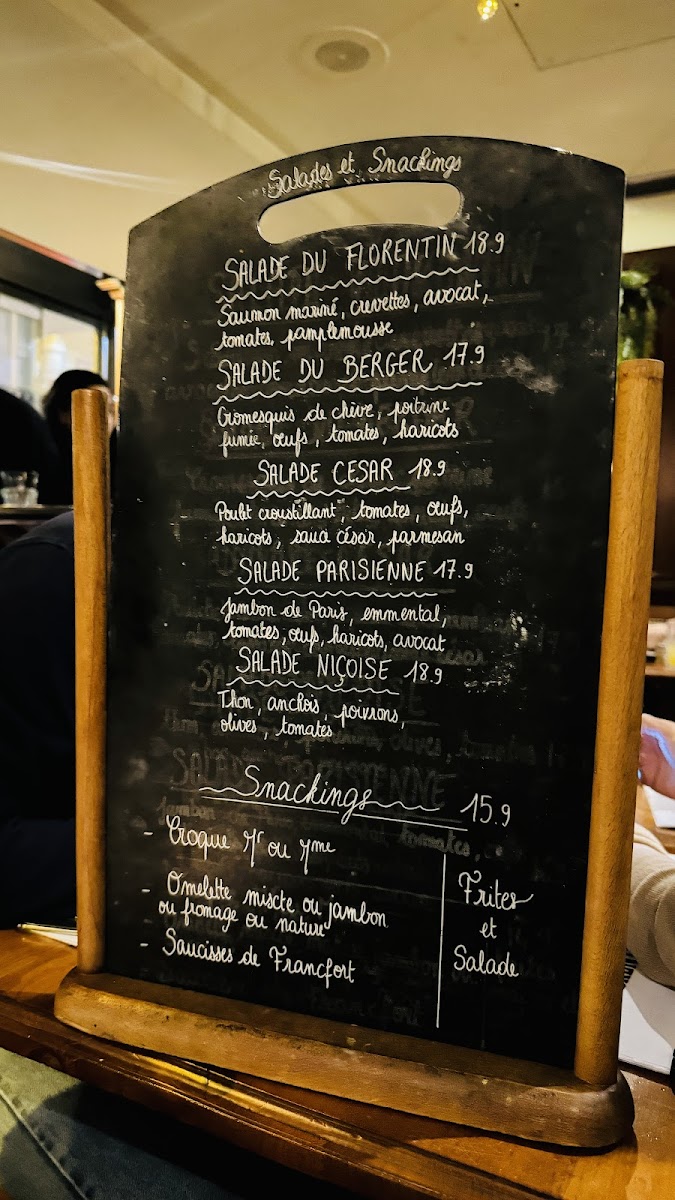 Salades et Snackings
SALADE DU FLORENTIN 18.9
Saumon mariné, crevettes, avocat,
tomates, pamplemousse
SALADE DU BERGER 17.9
Cromesquis de chèvre, poitrine
fumée, œufs, tomates, haricots
SALADE CESAR 18.9
Poulet croustillant, tomates, œufs,
haricots, sauce césar, parmesan
SALADE PARISIENNE 17.9
Jambon de Paris, emmental,
tomates, œufs, haricots, avocat
SALADE NIÇOISE 18.9
Thon, anchois, poivrons,
olives, tomates
Snackings 15.9
- Croque Mr ou Mme
- Omelette miscte ou jambon
ou fromage ou nature
- Saucisses de Francfort
Frites
et
Salade